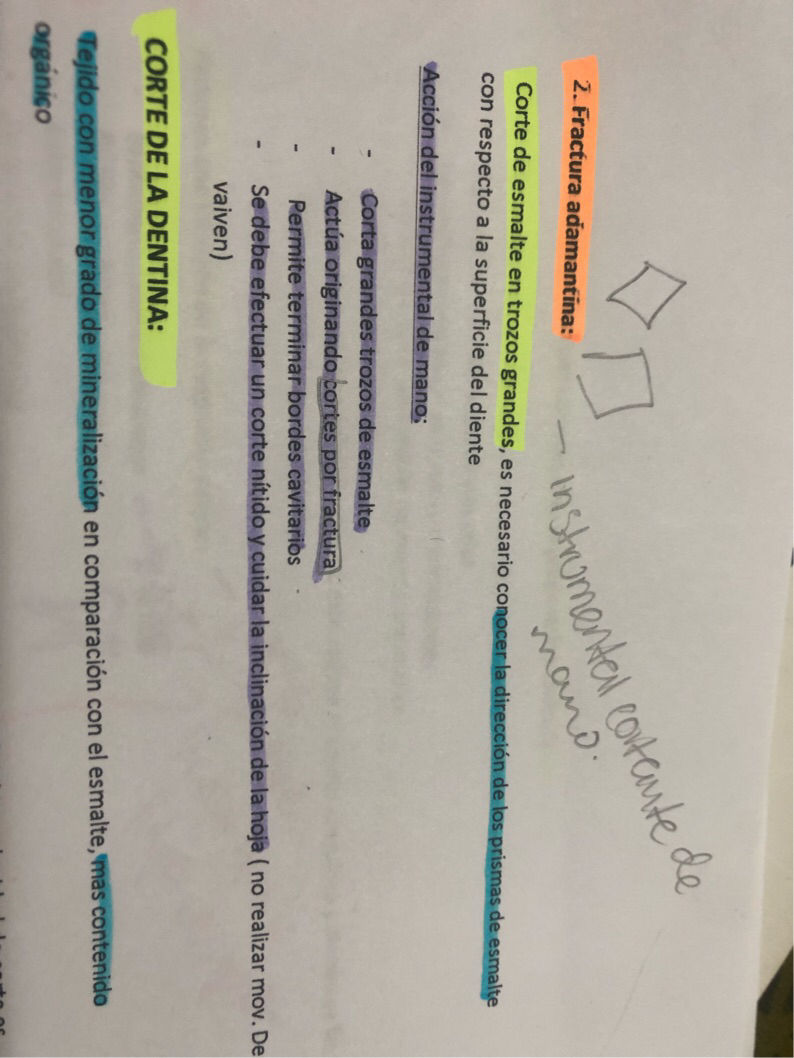 2. Fractura adamantina:
– instrumental cortante de
mano.
Corte de esmalte en trozos grandes, es necesario conocer la dirección de los prismas de esmalte
con respecto a la superficie del diente
Acción del instrumental de mano:
- Corta grandes trozos de esmalte
- Actúa originando cortes por fractura
- Permite terminar bordes cavitarios
- Se debe efectuar un corte nítido y cuidar la inclinación de la hoja ( no realizar mov. De
vaiven)
CORTE DE LA DENTINA:
Tejido con menor grado de mineralización en comparación con el esmalte, mas contenido
orgánico